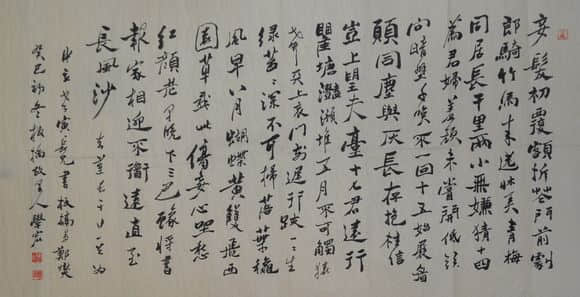 妾髮初覆額折花門前劇
郎騎竹馬來遶牀弄青梅
同居長干里兩小無嫌猜十四
為君婦羞顏未嘗開低頭
向暗壁千喚不一回十五始展眉
願同塵與灰長存抱柱信
豈上望夫臺十六君遠行
瞿塘灩澦堆五月不可觸猿
聲天上哀門前遲行跡一一生
綠苔苔深不可掃落葉穐
風早八月蝴蝶黃雙飛西
園草感此傷妾心坐愁
紅顏老早晚下三巴預將書
報家相迎不道遠直至
長風沙 李白長干行一首為
寅兄書板橋鄭燮
癸巳初冬板橋故里人學宏